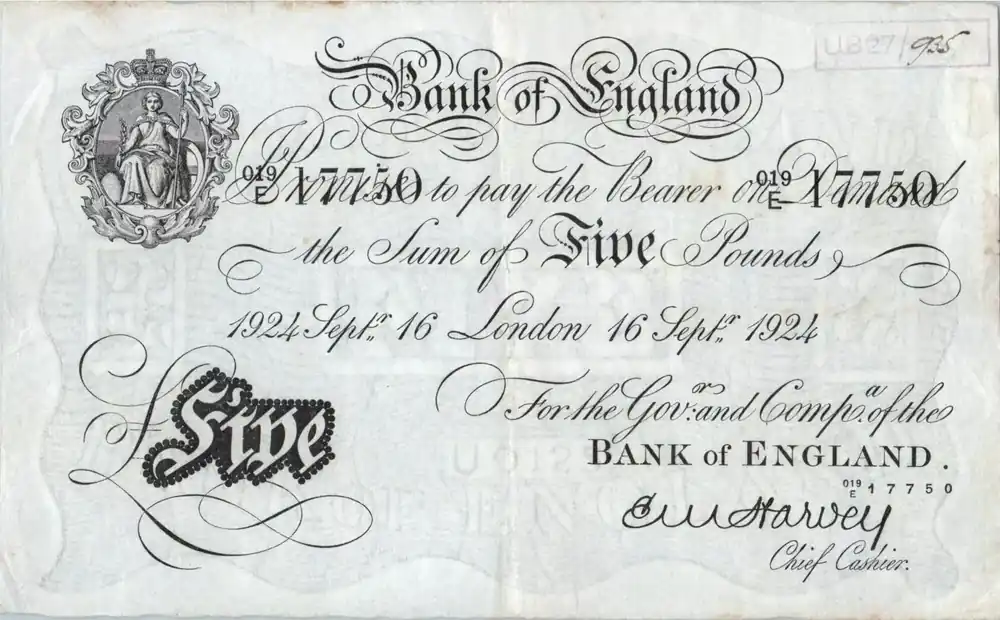 UB27/935
Bank of England
I Promise to pay the Bearer on Demand
019/E 17750 019/E 17750
the Sum of Five Pounds
1924 Septr. 16 London 16 Septr. 1924
For the Govr. and Compa. of the
BANK of ENGLAND.
Five
019/E 17750
C M Harvey
Chief Cashier.